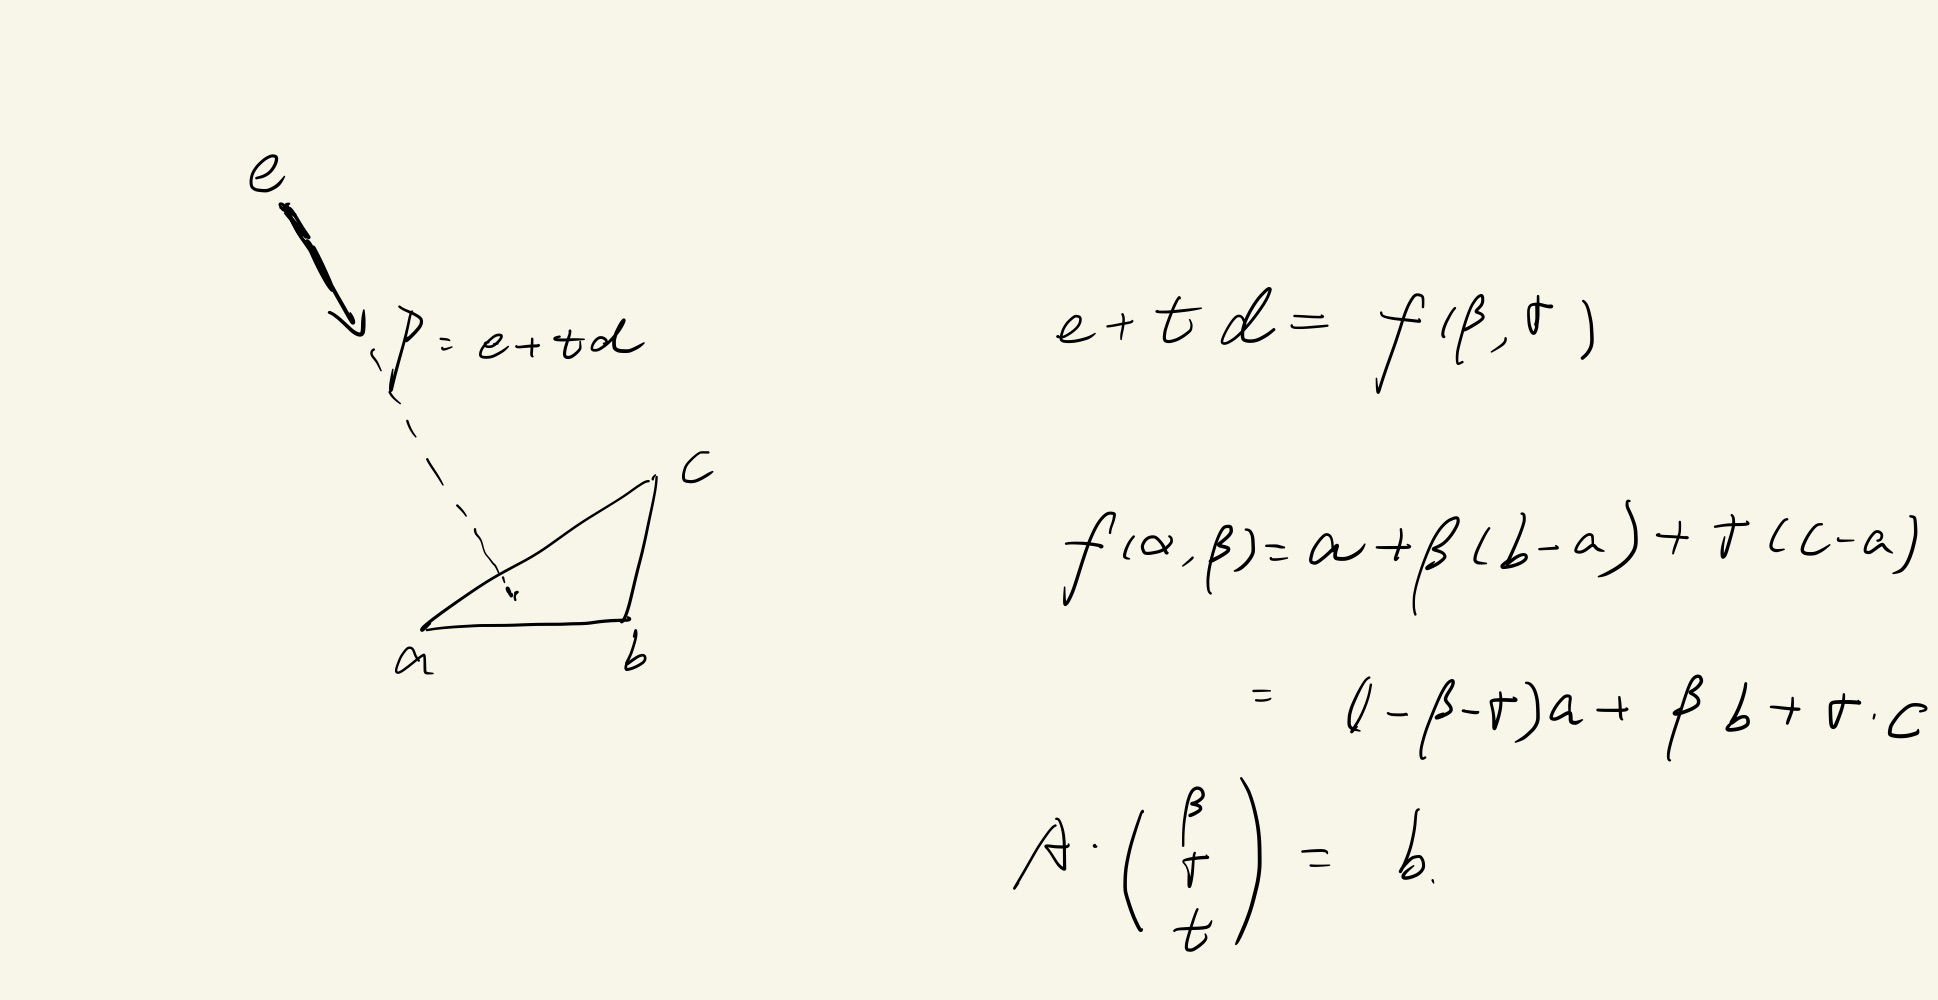 e
p = e+td
c
a
b
e+td = f(β,γ)
f(α,β) = a+β(b-a)+γ(c-a)
= (1-β-γ)a + βb + γ·c
A·(β
γ
t) = b.